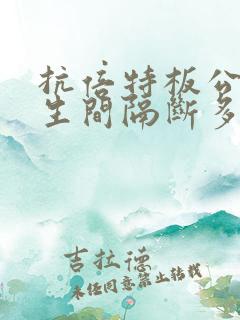 抗倍特板公
生間隔斷多
吉拉德
未经同意禁止转载